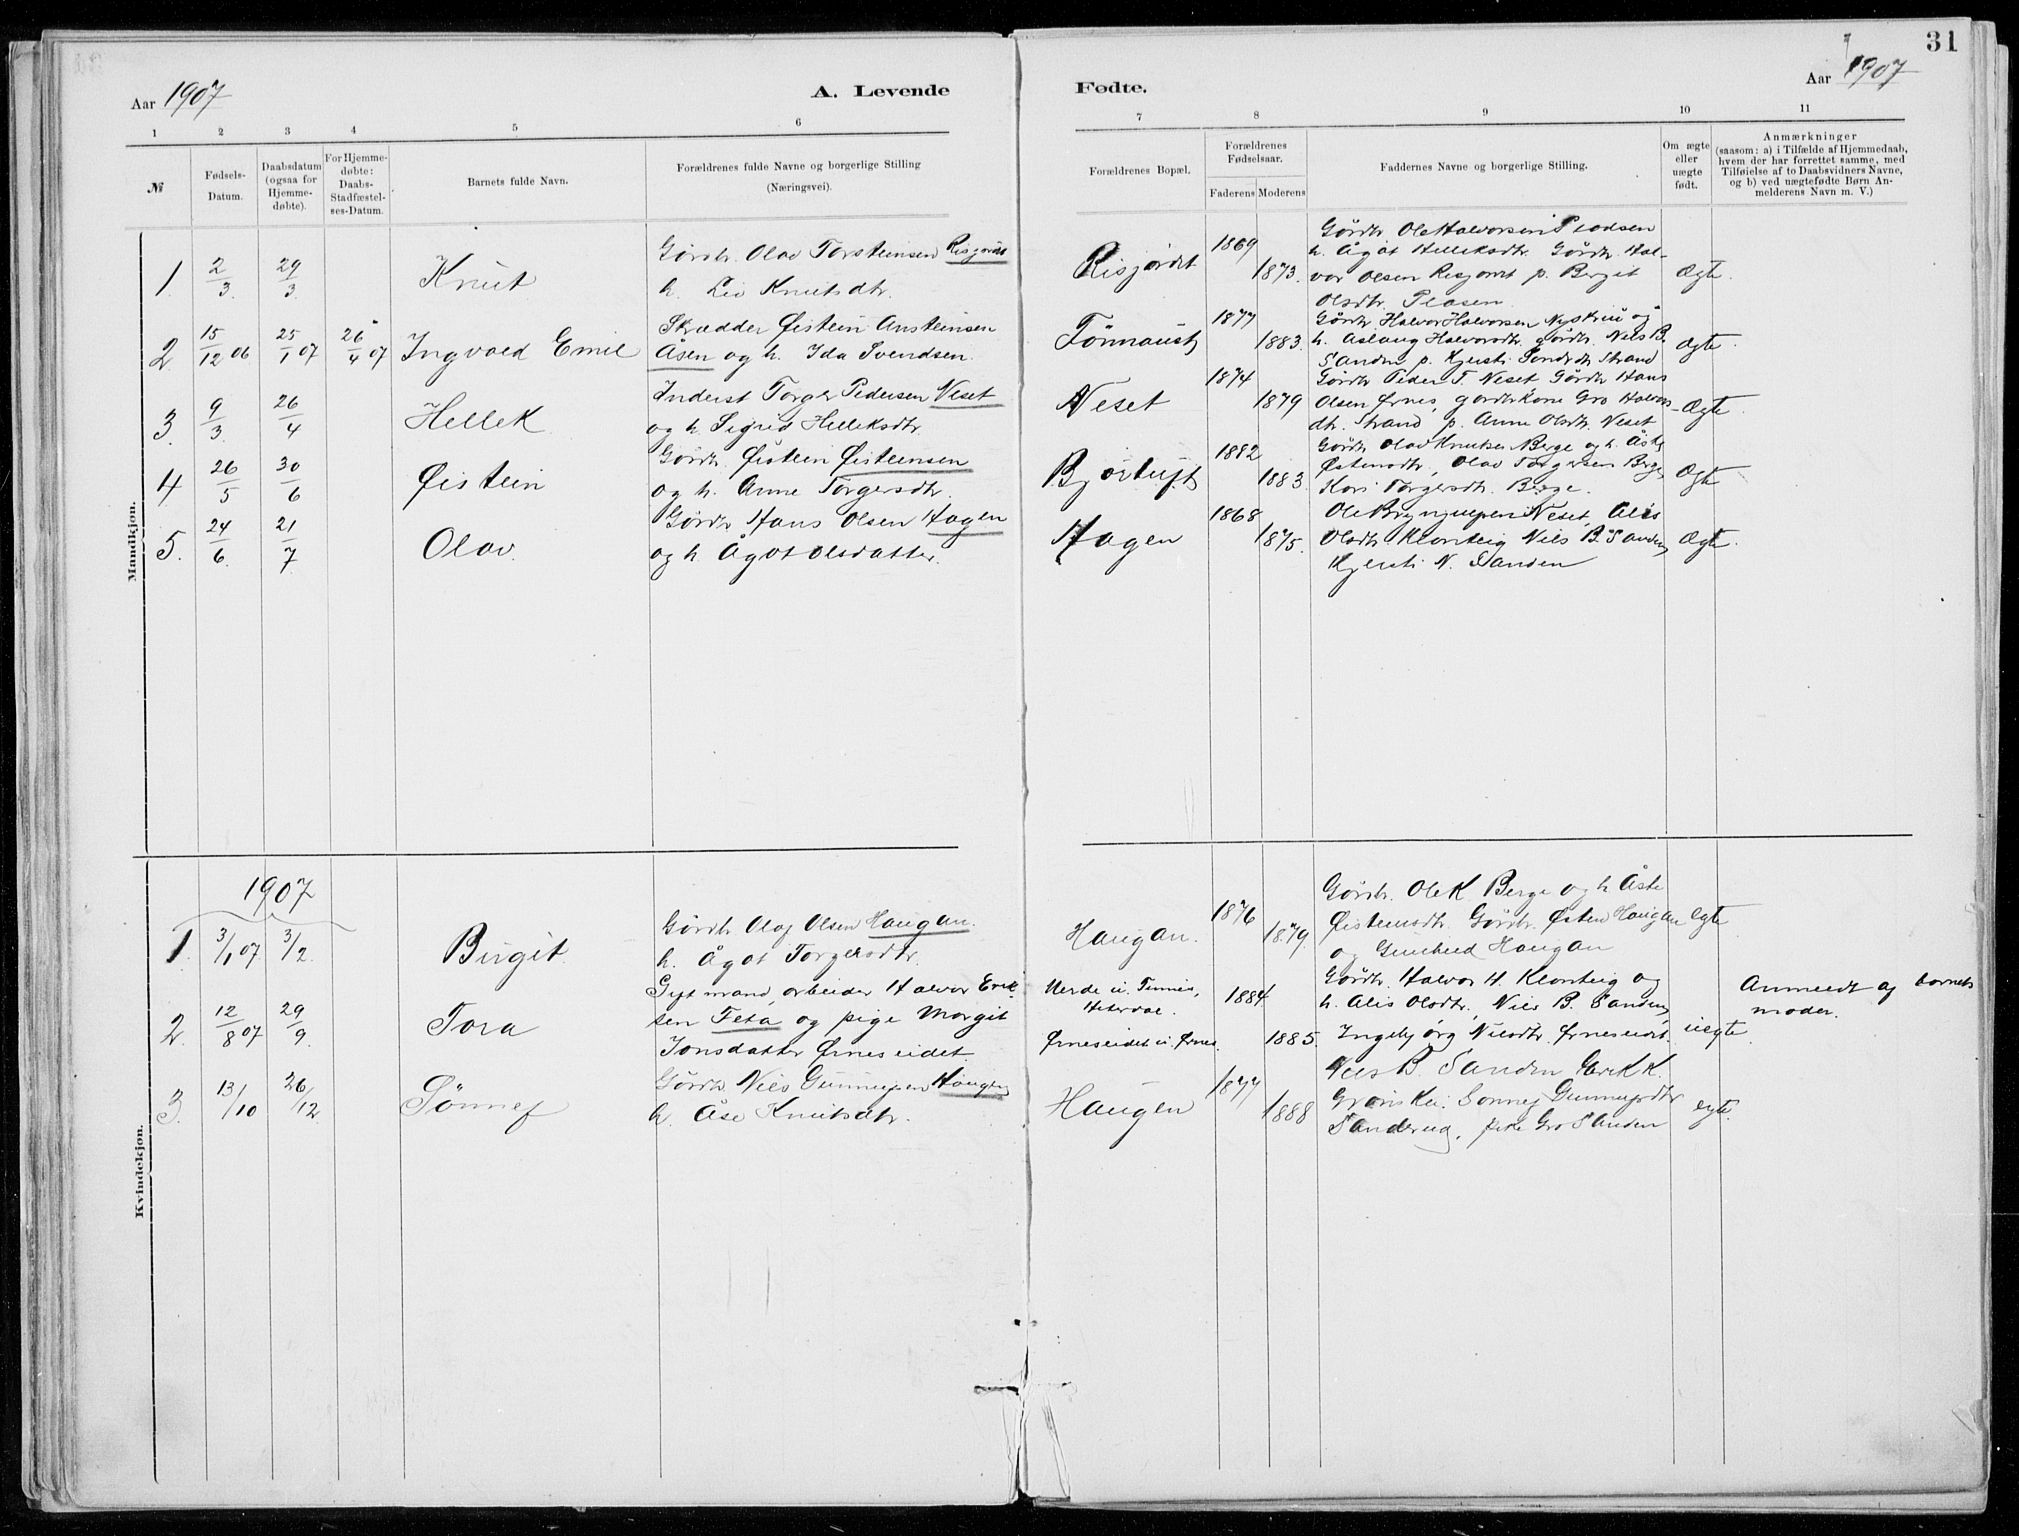 31
Aar 1907
A. Levende Fødte.
Aar 1907
1 2 3 4 5 6 7 8 9 10 11
№
Fødsels-
Datum.
Daabsdatum
(ogsaa for
Hjemme-
døbte).
For Hjemme-
døbte:
Daabs-
Stadfæstel-
ses-Datum.
Barnets fulde Navn.
Forældrenes fulde Navne og borgerlige Stilling
(Næringsvei).
Forældrenes Bopæl.
Forældrenes
Fødselsaar.
Faderens Moderens
Faddernes Navne og borgerlige Stilling.
Om ægte
eller
uægte
født.
Anmærkninger
(saasom: a) i Tilfælde af Hjemmedaab,
hvem der har forrettet samme, med
Tilføielse af to Daabsvidners Navne,
og b) ved uægtefødte Børn An-
melderens Navn m. V.)
Mandkjøn.
1. 2/3. 29/3 Knut
Gårdr. Olav Torsteinsen Risjordet
h. Liv Knutsdtr.
Risjordet 1869 1873.
Gårdr Ole Halvorsen Plassen
h. Ågot Helleksdtr. Gårdr. Hal-
vor Olsen Risjordet p. Bergit
Olsdtr. Plasen
Ægte.
2. 15/12 06 25/1 07 26/4 07 Ingvald Emil
Skrædder Øistein Ansteinsen
Åsen og h. Ida Svendsen.
Tønnaust 1877 1883.
Gårdr Halvor Halvorsen og
h. Aslaug Halvorsdtr. gårdr. Niels B.
Sanden p. Kjersti Strand
Ægte.
3. 9/3. 26/4 Hellek
Inderst Torger Pedersen Neset
og h. Sigrid Helleksdtr.
Neset 1874 1879
Gårdr Peder T. Neset Gårdr Hans
Olsen Ørnes, gårdrkone Gro Halvors
dtr. Strand p. Anne Olsdtr. Neset
Ægte.
4 26/5 30/6 Øistein
Gårdr. Øistein Øisteinsen
og h. Anne Torgersdtr.
Bjørtuft 1882 1883.
Gårdr Olav Knutsen Berge og h. Åste
Østensdtr, Olav Torgersen Berge,
Kari Torgersdtr. Berge.
Ægte
5. 24/6. 21/7. Olav.
Gårdr Hans Olsen Hagen
og h Ågot Olsdatter.
Hagen 1868 1875.
Ole Brynjulsen Neset, Alis
Olsdtr. Klonteig Niels B. Sanden,
Kjersti N. Sanden
Ægte.
Kvindekjøn.
1907
1. 3/1 07 3/2. Birgit.
Gårdr Olaf Olsen Haugan.
h. Ågot Torgersdtr.
Haugan. 1876 1879.
Gårdr. Ole K Berge og h Åste
Øistensdtr. Gårdr. Østen Haugan
og Gunhild Haugan
egte
2. 12/8 07 29/9. Tora
Gift mand, arbeider Halvor Erik-
sen Feta og pige Margit
Jonsdatter Ørneseidet.
Merde u. Tinnes,
Hiterdal.
Ørneseidet u. Ørnes. 1884 1885.
Gårdr. Halvor H. Klonteig og
h. Alis Olsdtr., Niels B. Sanden,
Ingebjørg Nilsdtr. Ørneseidet.
uegte
Anmeldt af barnets
moder.
3. 13/10 26/12 Sønnef
Gårdr Niels Gunnulfsen Haugen
h. Åse Knutsdtr.
Haugen 1877 1888
Niels B. Sanden K.
Sønnef Gunnulfsdtr
Sanderud, Gro Sanden
egte.